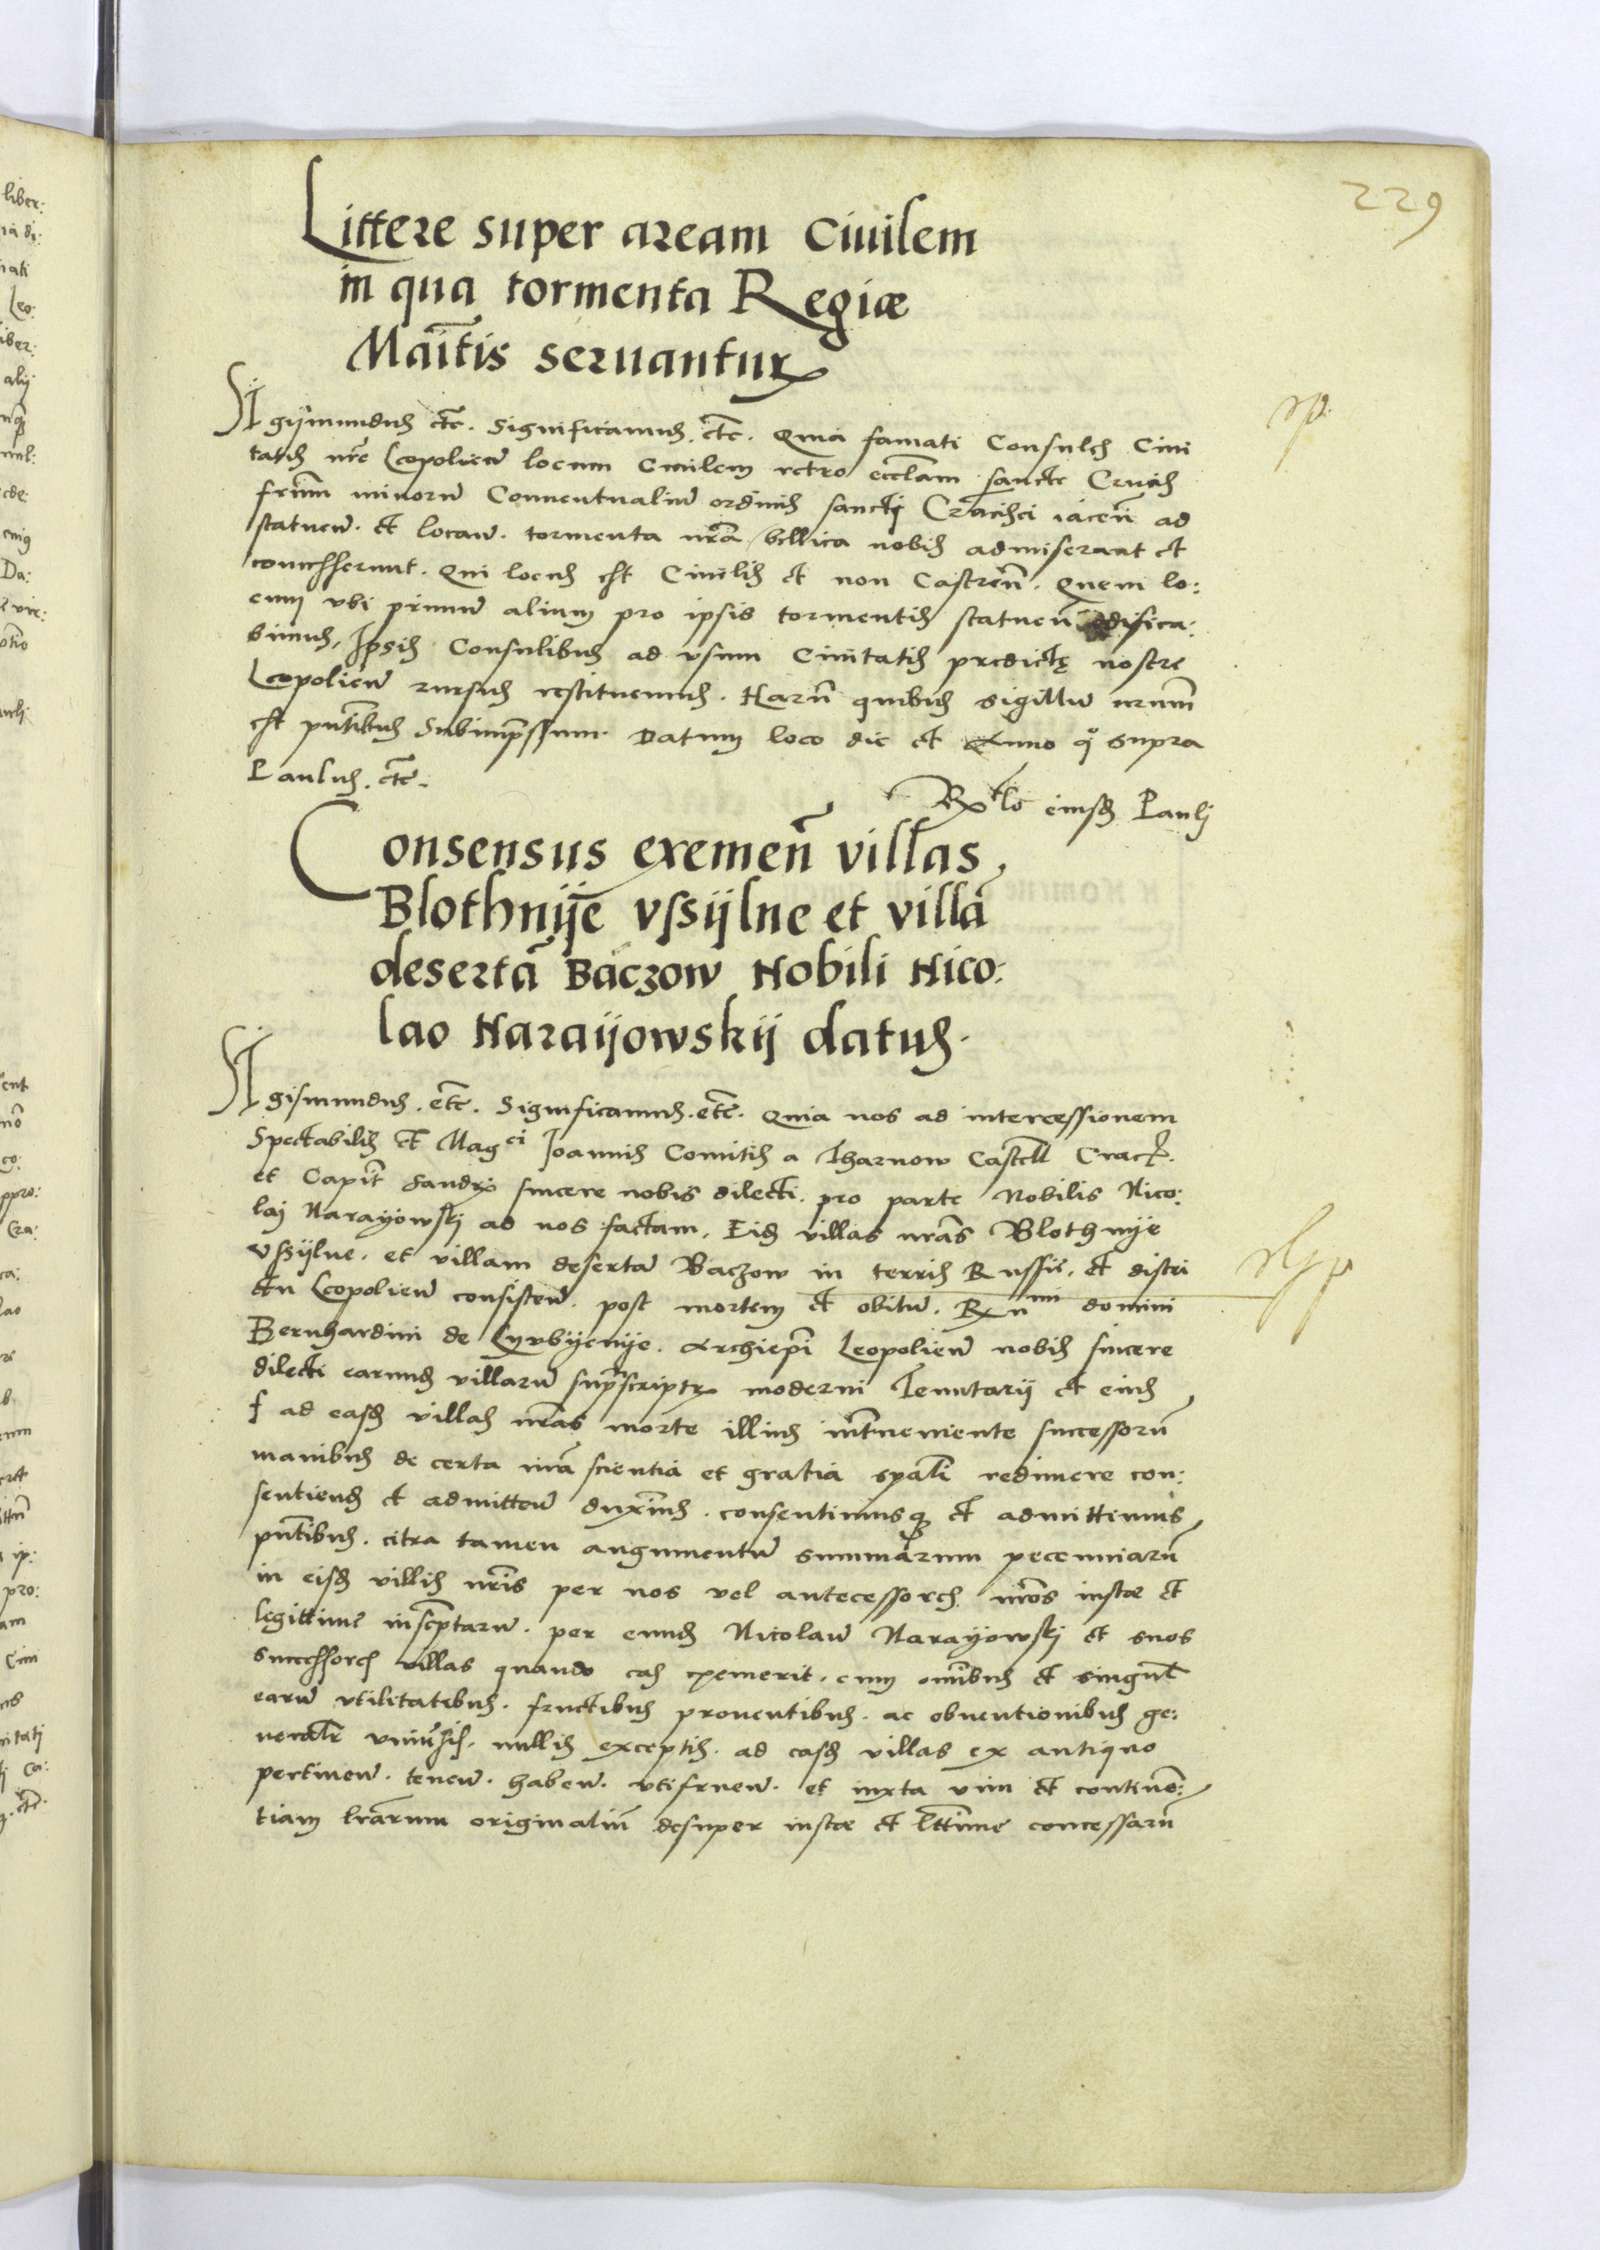 229
Littere super aream Ciuilem
in qua tormenta Regiæ
Maiṫtis seruantur
Sigijmundus etc. Significamus. etc. Quia famati Consules Ciui
tatis nr̃e Leopolien̄ locum Ciuilem retro eccl̃am sancte Crucis
frum̃ minorum̄ Conuentualiū ordinis sancti Francisci iacen̄ ad
statuen̄. et locan̄. tormenta nr̃a bellica nobis admiserant et
concesserunt. Qui locus est Ciuilis et non Castren̄. Quem lo:
cum vbi primum̄ alium pro ipsis tormentis statuen̄ edifica:
bimus, Ipsis Consulibus ad vsum Ciuitatis predictę nostre
Leopolien̄ rursus restituemus. Harū quibus sigillū nrum̃
est pn̄tibus Subimpressum. Datum loco die et Anno q̊ supra
Paulus. etc.
Rtio eiusd̄ Paulj
Consensus exemen̄ villas
Blothnije vssijlne et villā
desertā Baczow Nobili Nico:
lao Naraijowskij datus.
Sigismundus. etc. Significamus. etc. Quia nos ad intercessionem
Spectabilis et Magci Joannis Comitis a Tharnow Castell Crac.
et Capit̄ Sandr̄ sincere nobis dilecti. pro parte Nobilis Nico:
laj Narayowskj ad nos factam. Eid̄ villas nr̃as Blothnije
Vssijlne. et villam desertā Baczow in terris Russie. et distri
ctu Leopolien̄ consisten̄. post mortem et obitū. Rn̄mi domini
Bernhardini de Archiepi̅ Leopolien̄ nobis sincere
dilecti earund̄ villarū suprascriptar̄ moderni Tenutarij et eius
s ad easd̄ villas nr̃as morte illius int̄ueniente successorū
manibus de certa nr̃a scientia et gratia sp̄ali redimere con:
sentiend̄ et admitten̄ duximus. consentimusq̄ et admittimus
pn̄tibus. citra tamen augmentū summarum pecuniarū
in eisd̄ villis nr̃is per nos vel antecessores nr̃os iustæ et
legittime inscptarū. per eund̄ Nicolaū Narayowskj et suos
successores villas quando eas exemerit. cum omibus et singul̄
earū vtilitatibus. fructibus prouentibus. ac obuentionibus ge:
neralr̄ vniuersis. nullis exceptis. ad easd̄ villas ex antiquo
pertinen̄. tenen̄. haben̄. vtifruen̄. et iuxta vim et continen:
tiam lr̃arum originaliū desuper iustæ et lttime concessarū